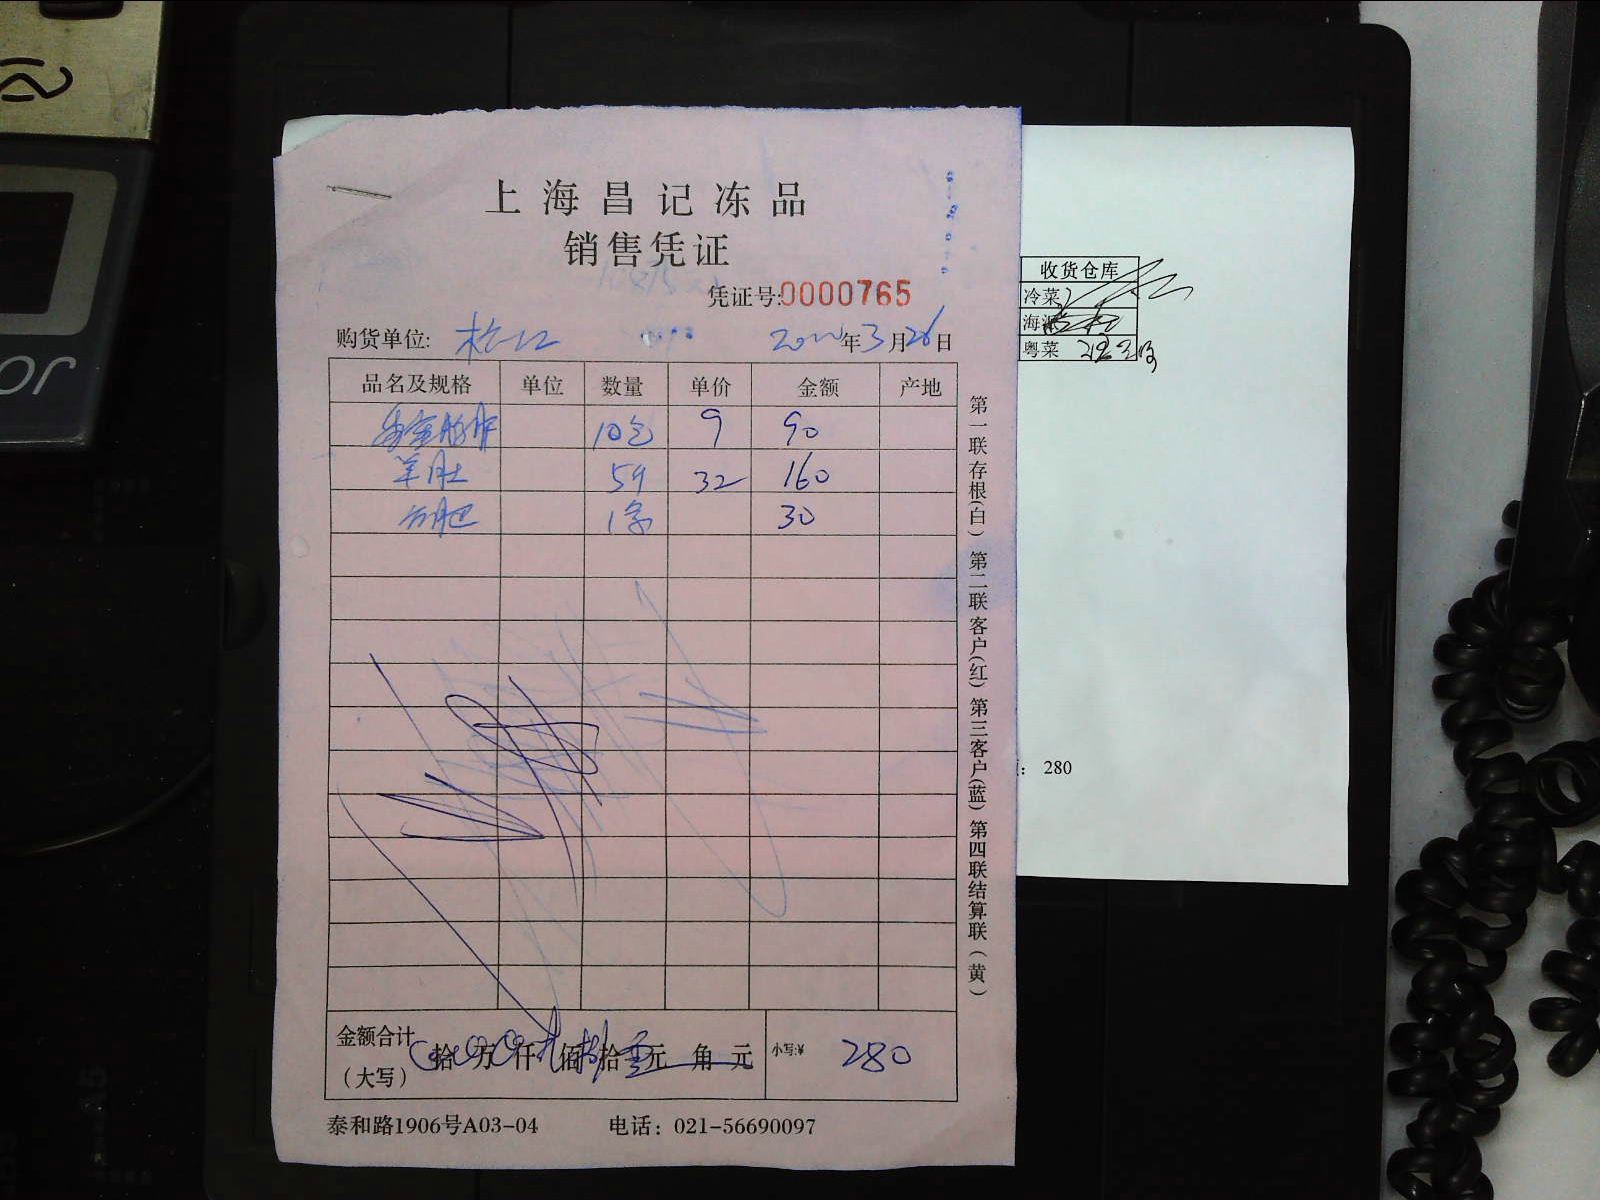 上海昌记冻品
销售凭证
凭证号:0000765
购货单位: 松江 年3月26日
品名及规格 单位 数量 单价 金额 产地
10包 9 90
羊肚 5斤 32 160
1条 30
金额合计
(大写) 拾 万 仟 佰 拾 元 角 元 小写:¥ 280
泰和路1906号A03-04 电话：021-56690097
第一联存根(白) 第二联客户(红) 第三客户(蓝) 第四联结算联(黄)
收货仓库
冷菜
海派
粤菜
: 280